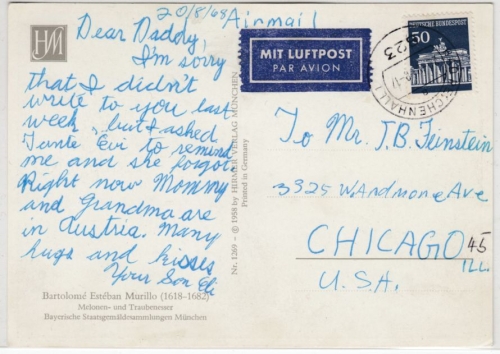 HM
20/8/68 Airmail
Dear Daddy,
I'm sorry
that I didn't
write to you last
week, but I asked
Tante Evi to remind
me and she forgot
Right now Mommy
and Grandma are
in Austria. Many
hugs and kisses
Your Son Eli
Bartolomé Estéban Murillo (1618–1682)
Melonen- und Traubenesser
Bayerische Staatsgemäldesammlungen München
Nr. 1269 – © 1958 by HIRMER VERLAG MÜNCHEN
Printed in Germany
MIT LUFTPOST
PAR AVION
DEUTSCHE BUNDESPOST
50
To Mr. J.B. Feinstein
3325 W. Ardmore Ave
CHICAGO 45
ILL.
U.S.A.